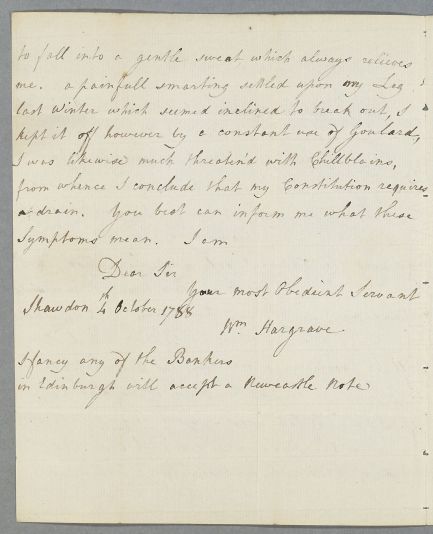 to fall into a gentle sweat which always relieves
me. a painfull smarting setled upon my Leg
last Winter which seimed inclined to break out, I
kept it off however by a constant use of Goulard,
I was likewise much threatend with Chillblains,
from whence I conclude that my Constitution requires
a drain. You best can inform me what these
Symptoms mean. I am
Dear Sir
Your most Obedient Servant
Shawdon 4th October 1788
Wm Hargrave.
I fancy any of the Bankers
in Edinburgh will accept a Newcastle Note